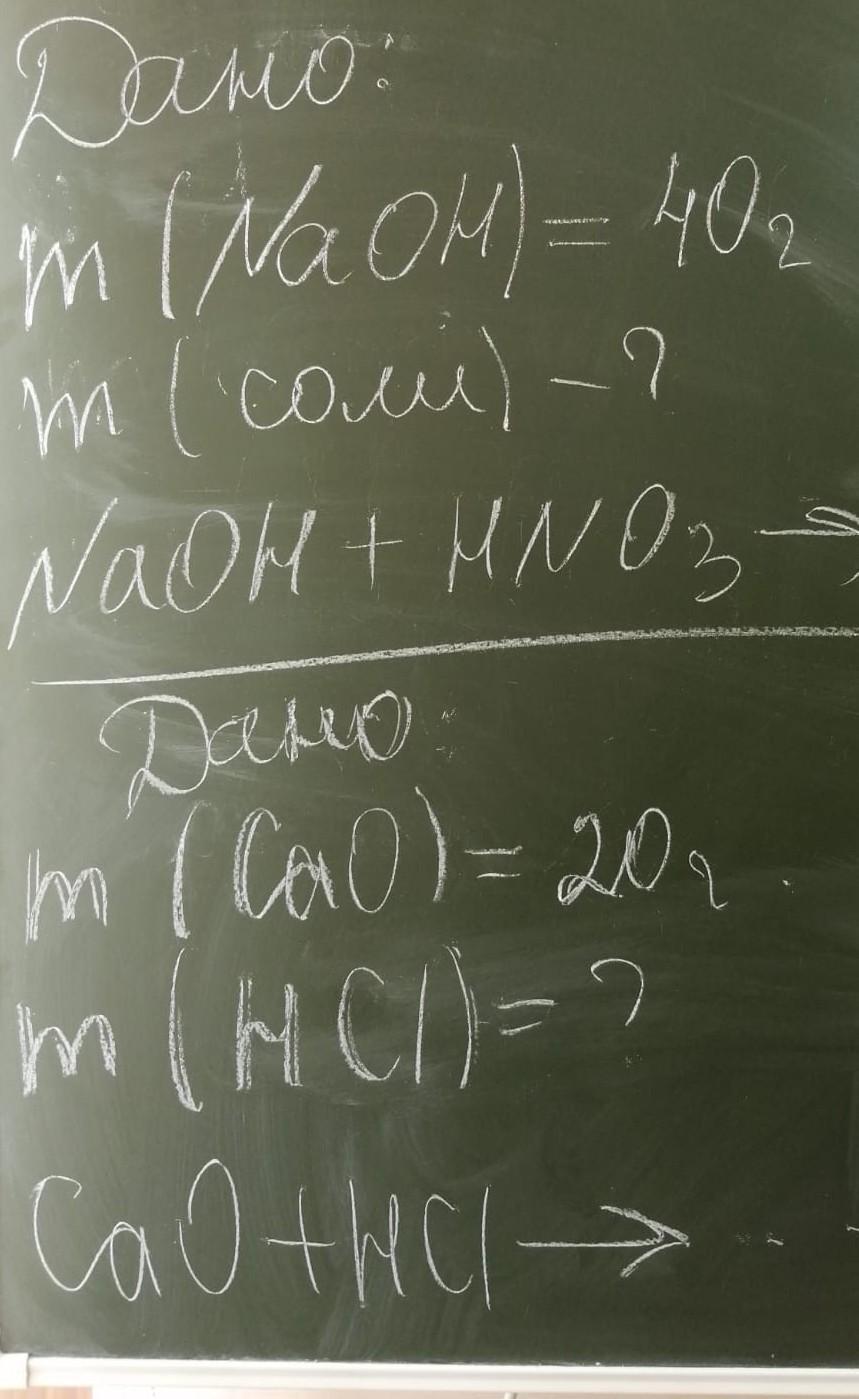 Дано:
m (NaOH) = 40г
m (соли) – ?
NaOH + HNO₃ →
Дано:
m (CaO) = 20г.
m (HCl) = ?
CaO + HCl → ...